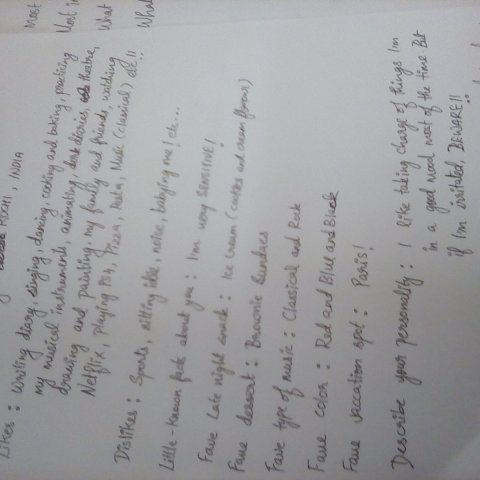 KOCHI, INDIA
Likes: Writing diary, singing, dancing, cooking and baking, practicing
my musical instruments, animating, books, diaries, theatre,
drawing and painting, my family and friends, watching
Netflix, playing PS4, Pizza, Pasta, Music (classical) etc!!
Dislikes: Sports, sitting idle, noise, babying me! etc...
Little known facts about you: I'm very SENSITIVE!
Fave late night snack: Ice cream (cookies and cream flavour)
Fave dessert: Brownie Sundaes
Fave type of music: Classical and Rock
Fave color: Red and Blue and Black
Fave vaccation spot: Paris!
Describe your personality: I like taking charge of things I'm
in a good mood most of the time. But
if I'm irritated, BEWARE!!
Most
Next i
What
What